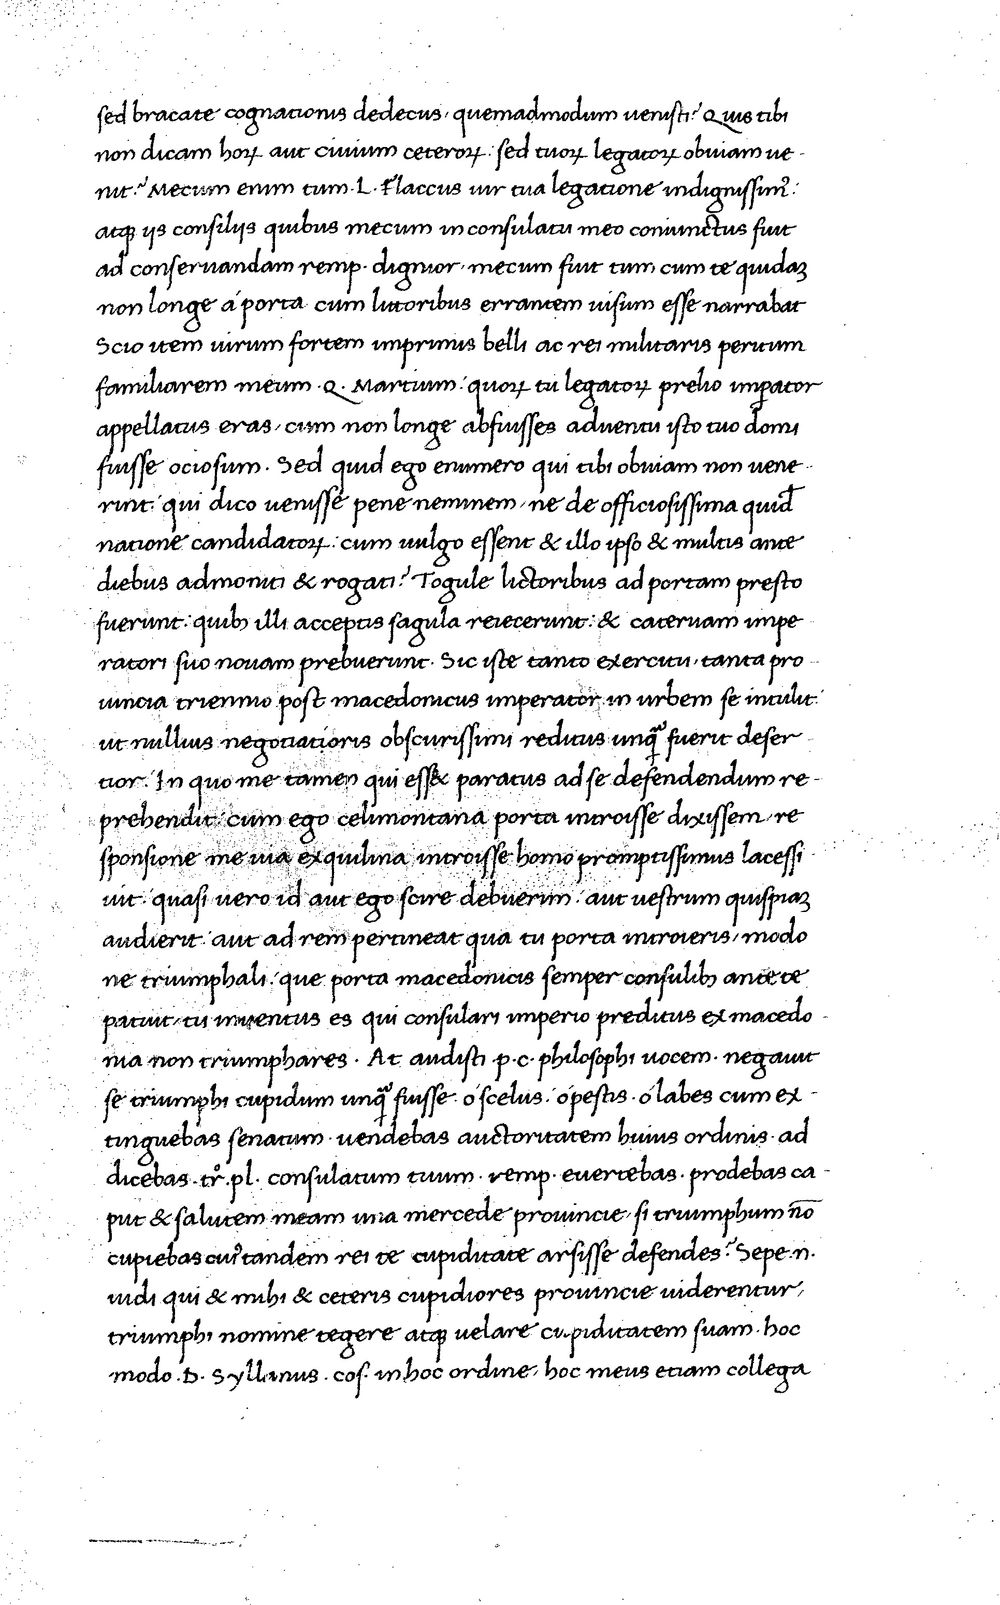 sed bracate cognationis dedecus, quemadmodum venisti? Quis tibi
non dicam hoꝝ aut civium ceteroꝝ: sed tuoꝝ legatoꝝ obviam ue-
nit? Mecum enim tum .L. Flaccus uir tua legatione indignissim9:
atqꝫ iis consilijs quibus mecum in consulatu meo coniunctus fuit
ad conseruandam remp. dignior, mecum fuit tum cum te quidaꝫ
non longe á porta cum littoribus errantem uisum esse narrabat
Scio item uirum fortem imprimis belli ac rei militaris peritum
familiarem meum .Q. Martium: quoꝝ tu legatoꝝ prelio imꝑator
appellatus eras, cum non longe abfuisses aduentu isto tuo domi
fuisse ociosum. Sed quid ego enumero qui tibi obuiam non uene-
rint: qui dico uenisse pene neminem, ne de officiosissima quid̄
natione candidatoꝝ: cum uulgo essent & illo ipso & multis ante
diebus admoniti & rogati? Togule lictoribus ad portam presto
fuerunt: quibꝫ illi acceptis sagula reiecerunt: & cateruam impe
ratori suo nouam prebuerunt. Sic iste tanto exercitu, tanta pro-
uincia triennio post macedonicus imperator in urbem se intulit:
ut nullius negotiatioris obscurissimi reditus unq̃ fuerit deser-
tior. In quo me tamen qui esset paratus ad se defendendum re-
prehendit: cum ego celimontana porta introisse dixissem, re
sponsione me uia exquilina introisse homo promptissimus lacessi
uit: quasi uero id aut ego scire debuerim: aut uestrum quispiaꝫ
audierit: aut ad rem pertineat qua tu porta introieris, modo
ne triumphali: que porta macedonicis semper consulibꝫ ante te
patuit, tu inuentus es qui consulari imperio preditus ex macedo-
nia non triumphares. At audisti .p.c. philosophi uocem. negauit
se triumphi cupidum unq̃ fuisse. ó scelus: ó pestis. ó labes cum ex-
tinguebas senatum. uendebas auctoritatem huius ordinis. ad
dicebas .tr̊.pl. consulatum tuum. remp. euertebas. prodebas ca-
put & salutem meam una mercede prouincie, si triumphum nō
cupiebas cui9 tandem rei te cupiditate arsisse defendes? Sepe .n.
uidi qui & mihi & ceteris cupidiores prouincie uiderentur,
triumphi nomine tegere atqꝫ uelare cupiditatem suam. hoc
modo .D. Syllanus. cos. in hoc ordine, hoc meus etiam collega